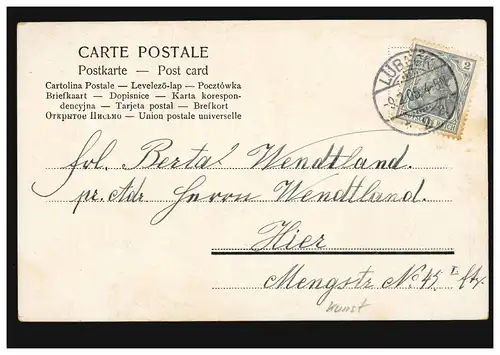 CARTE POSTALE
Postkarte — Post card
Cartolina Postale — Levelező-lap — Pocztówka
Briefkaart — Dopisnice — Karta korespon-
dencyjna — Tarjeta postal — Brefkort
Открытое Письмо — Union postale universelle
LÜBECK
2
Frl. Berta Wendtland.
pr. Adr. Herrn Wendtland.
Hier
Mengstr No. 45 I Etg.
Kunst